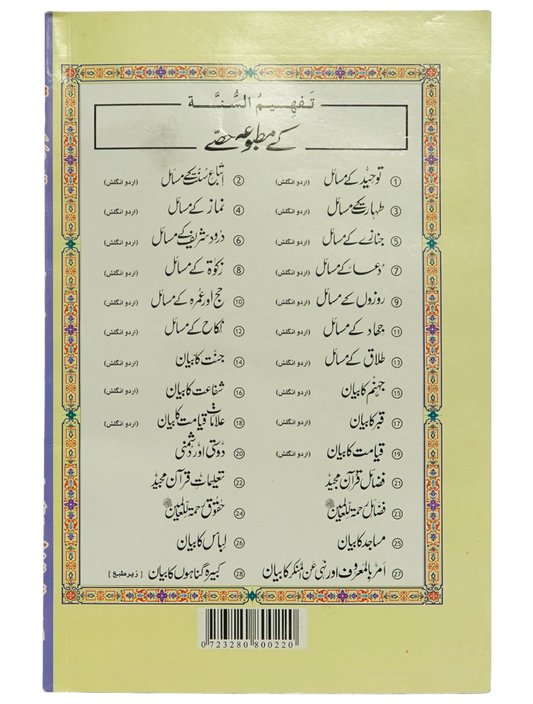 تَفہِیمُ السُّنَّة
کے مطبوعہ حصے
① توحید کے مسائل (اردو انگلش) ② اتباع سنت کے مسائل (اردو انگلش)
③ طہارت کے مسائل (اردو انگلش) ④ نماز کے مسائل (اردو انگلش)
⑤ جنازے کے مسائل (اردو انگلش) ⑥ درود شریف کے مسائل (اردو انگلش)
⑦ دُعا کے مسائل (اردو انگلش) ⑧ زکوٰة کے مسائل (اردو انگلش)
⑨ روزوں کے مسائل (اردو انگلش) ⑩ حج اور عمرہ کے مسائل (اردو انگلش)
⑪ جہاد کے مسائل (اردو انگلش) ⑫ نکاح کے مسائل (اردو انگلش)
⑬ طلاق کے مسائل (اردو انگلش) ⑭ جنت کا بیان (اردو انگلش)
⑮ جہنم کا بیان (اردو انگلش) ⑯ شفاعت کا بیان (اردو انگلش)
⑰ قبر کا بیان (اردو انگلش) ⑱ علامات قیامت کا بیان (اردو انگلش)
⑲ قیامت کا بیان (اردو انگلش) ⑳ دوستی اور دشمنی
㉑ فضائل قرآن مجید ㉒ تعلیمات قرآن مجید
㉓ فضائل رحمة للعالمین ﷺ ㉔ حقوق رحمة للعالمین ﷺ
㉕ مساجد کا بیان ㉖ لباس کا بیان
㉗ امر بالمعروف اور نہی عن المنکر کا بیان ㉘ کبیرہ گناہوں کا بیان [زیر طبع]
0 723280 800220